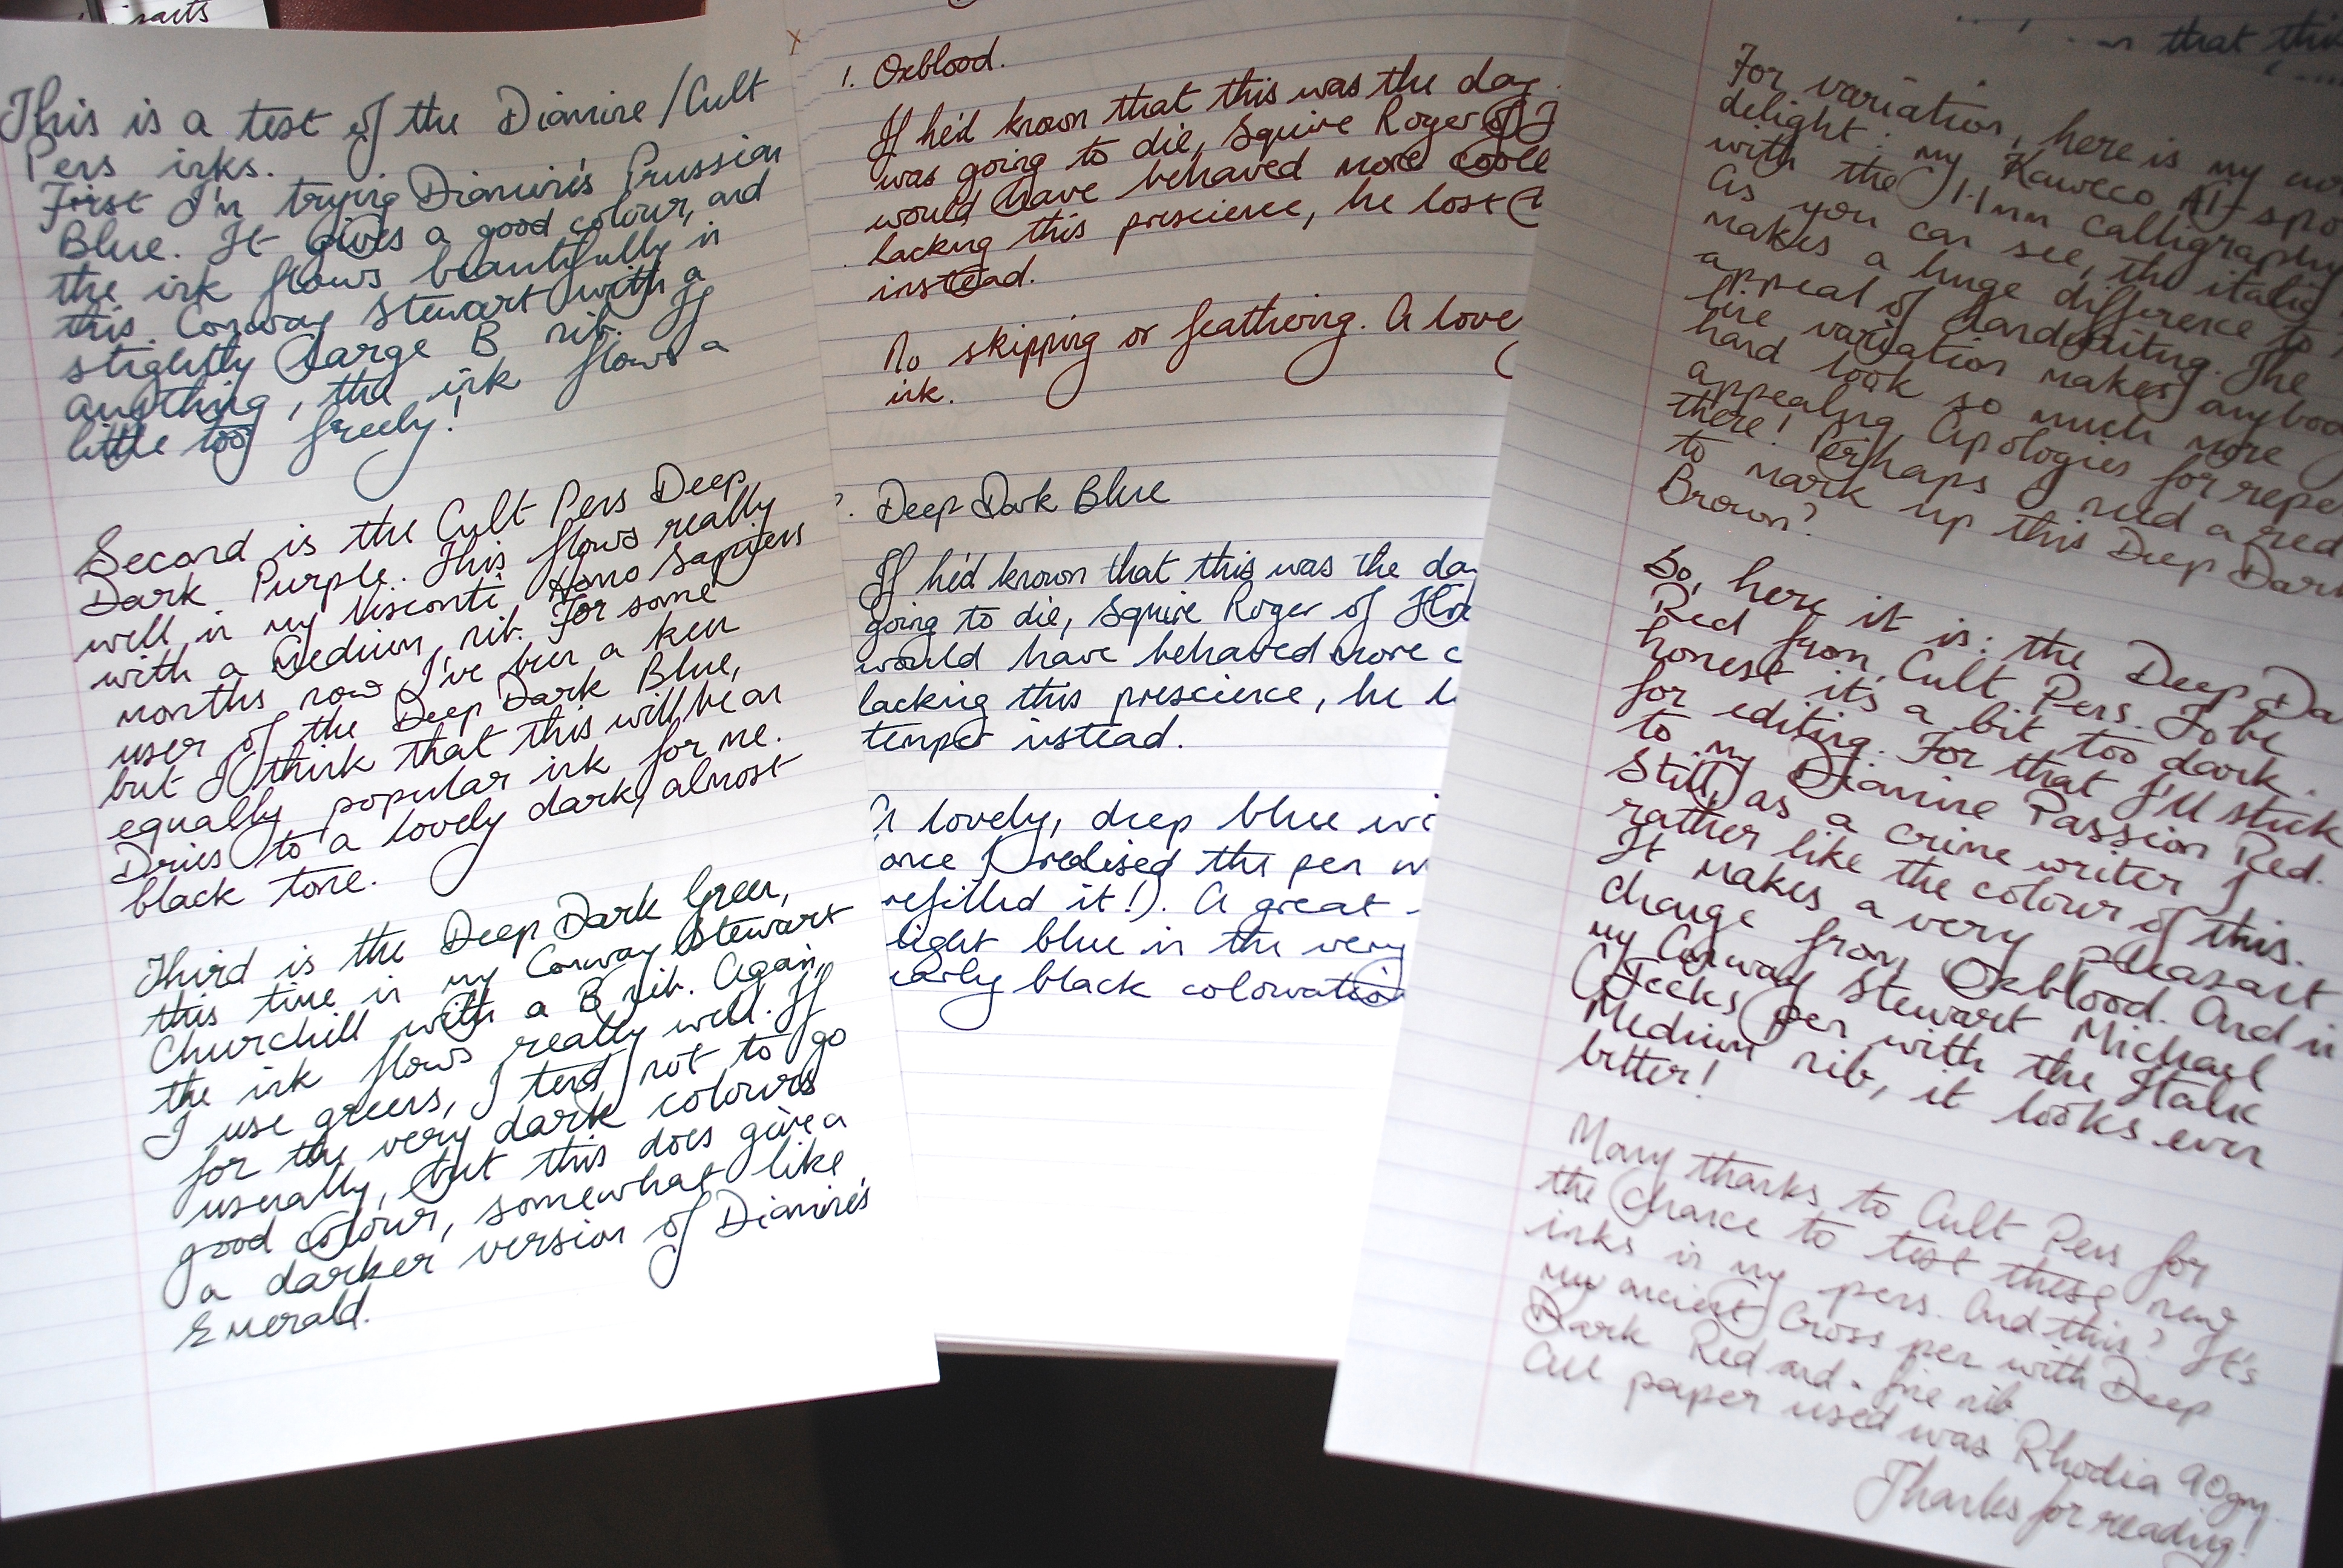 This is a test of the Diamine / Cult
Pens inks.
First I'm trying Diamine's Prussian
Blue. It gives a good colour, and
the ink flows beautifully in
this Conway Stewart with a
slightly large B nib. If
anything, the ink flows a
little too freely!
Second is the Cult Pens Deep
Dark Purple. This flows really
well in my Visconti Homo Sapiens
with a Medium nib. For some
months now I've been a keen
user of the Deep Dark Blue,
but I think that this will be an
equally popular ink for me.
Dries to a lovely dark, almost
black tone.
Third is the Deep Dark Green,
this time in my Conway Stewart
Churchill with a B nib. Again,
the ink flows really well. If
I use greens, I tend not to go
for the very dark colours
usually, but this does give a
good colour, somewhat like
a darker version of Diamine's
Emerald.
1. Oxblood.
If he'd known that this was the day
was going to die, Squire Roger of
would have behaved more
lacking this prescience, he lost
instead.
No skipping or feathering. A love
ink.
Deep Dark Blue
If he'd known that this was the da
going to die, Squire Roger of
would have behaved more c
lacking this prescience, he l
temper instead.
A lovely, deep blue wi
once I realised the pen w
refilled it!). A great
light blue in the very
early black colouration
that this
For variation, here is my
delight: my Kaweco Al-Spo
with the 1.1mm calligraphy
As you can see, the italic
makes a huge difference to
appeal of handwriting. The
line variation makes anybod
hand look so much more
appealing. Apologies for repe
there! Perhaps I need a red
to mark up this Deep Dark
Brown?
So, here it is: the Deep Da
Red from Cult Pens. To be
honest it's a bit too dark
for editing. For that I'll stick
to my Diamine Passion Red.
Still, as a crime writer I
rather like the colour of this.
It makes a very pleasant
change from Oxblood. And in
my Conway Stewart Michael
Jecks pen with the Italic
Medium nib, it looks even
better!
Many thanks to Cult Pens for
the chance to test these new
inks in my pens. And this? It's
my ancient Cross pen with Deep
Dark Red and a fine nib.
All paper used was Rhodia 90gm.
Thanks for reading!